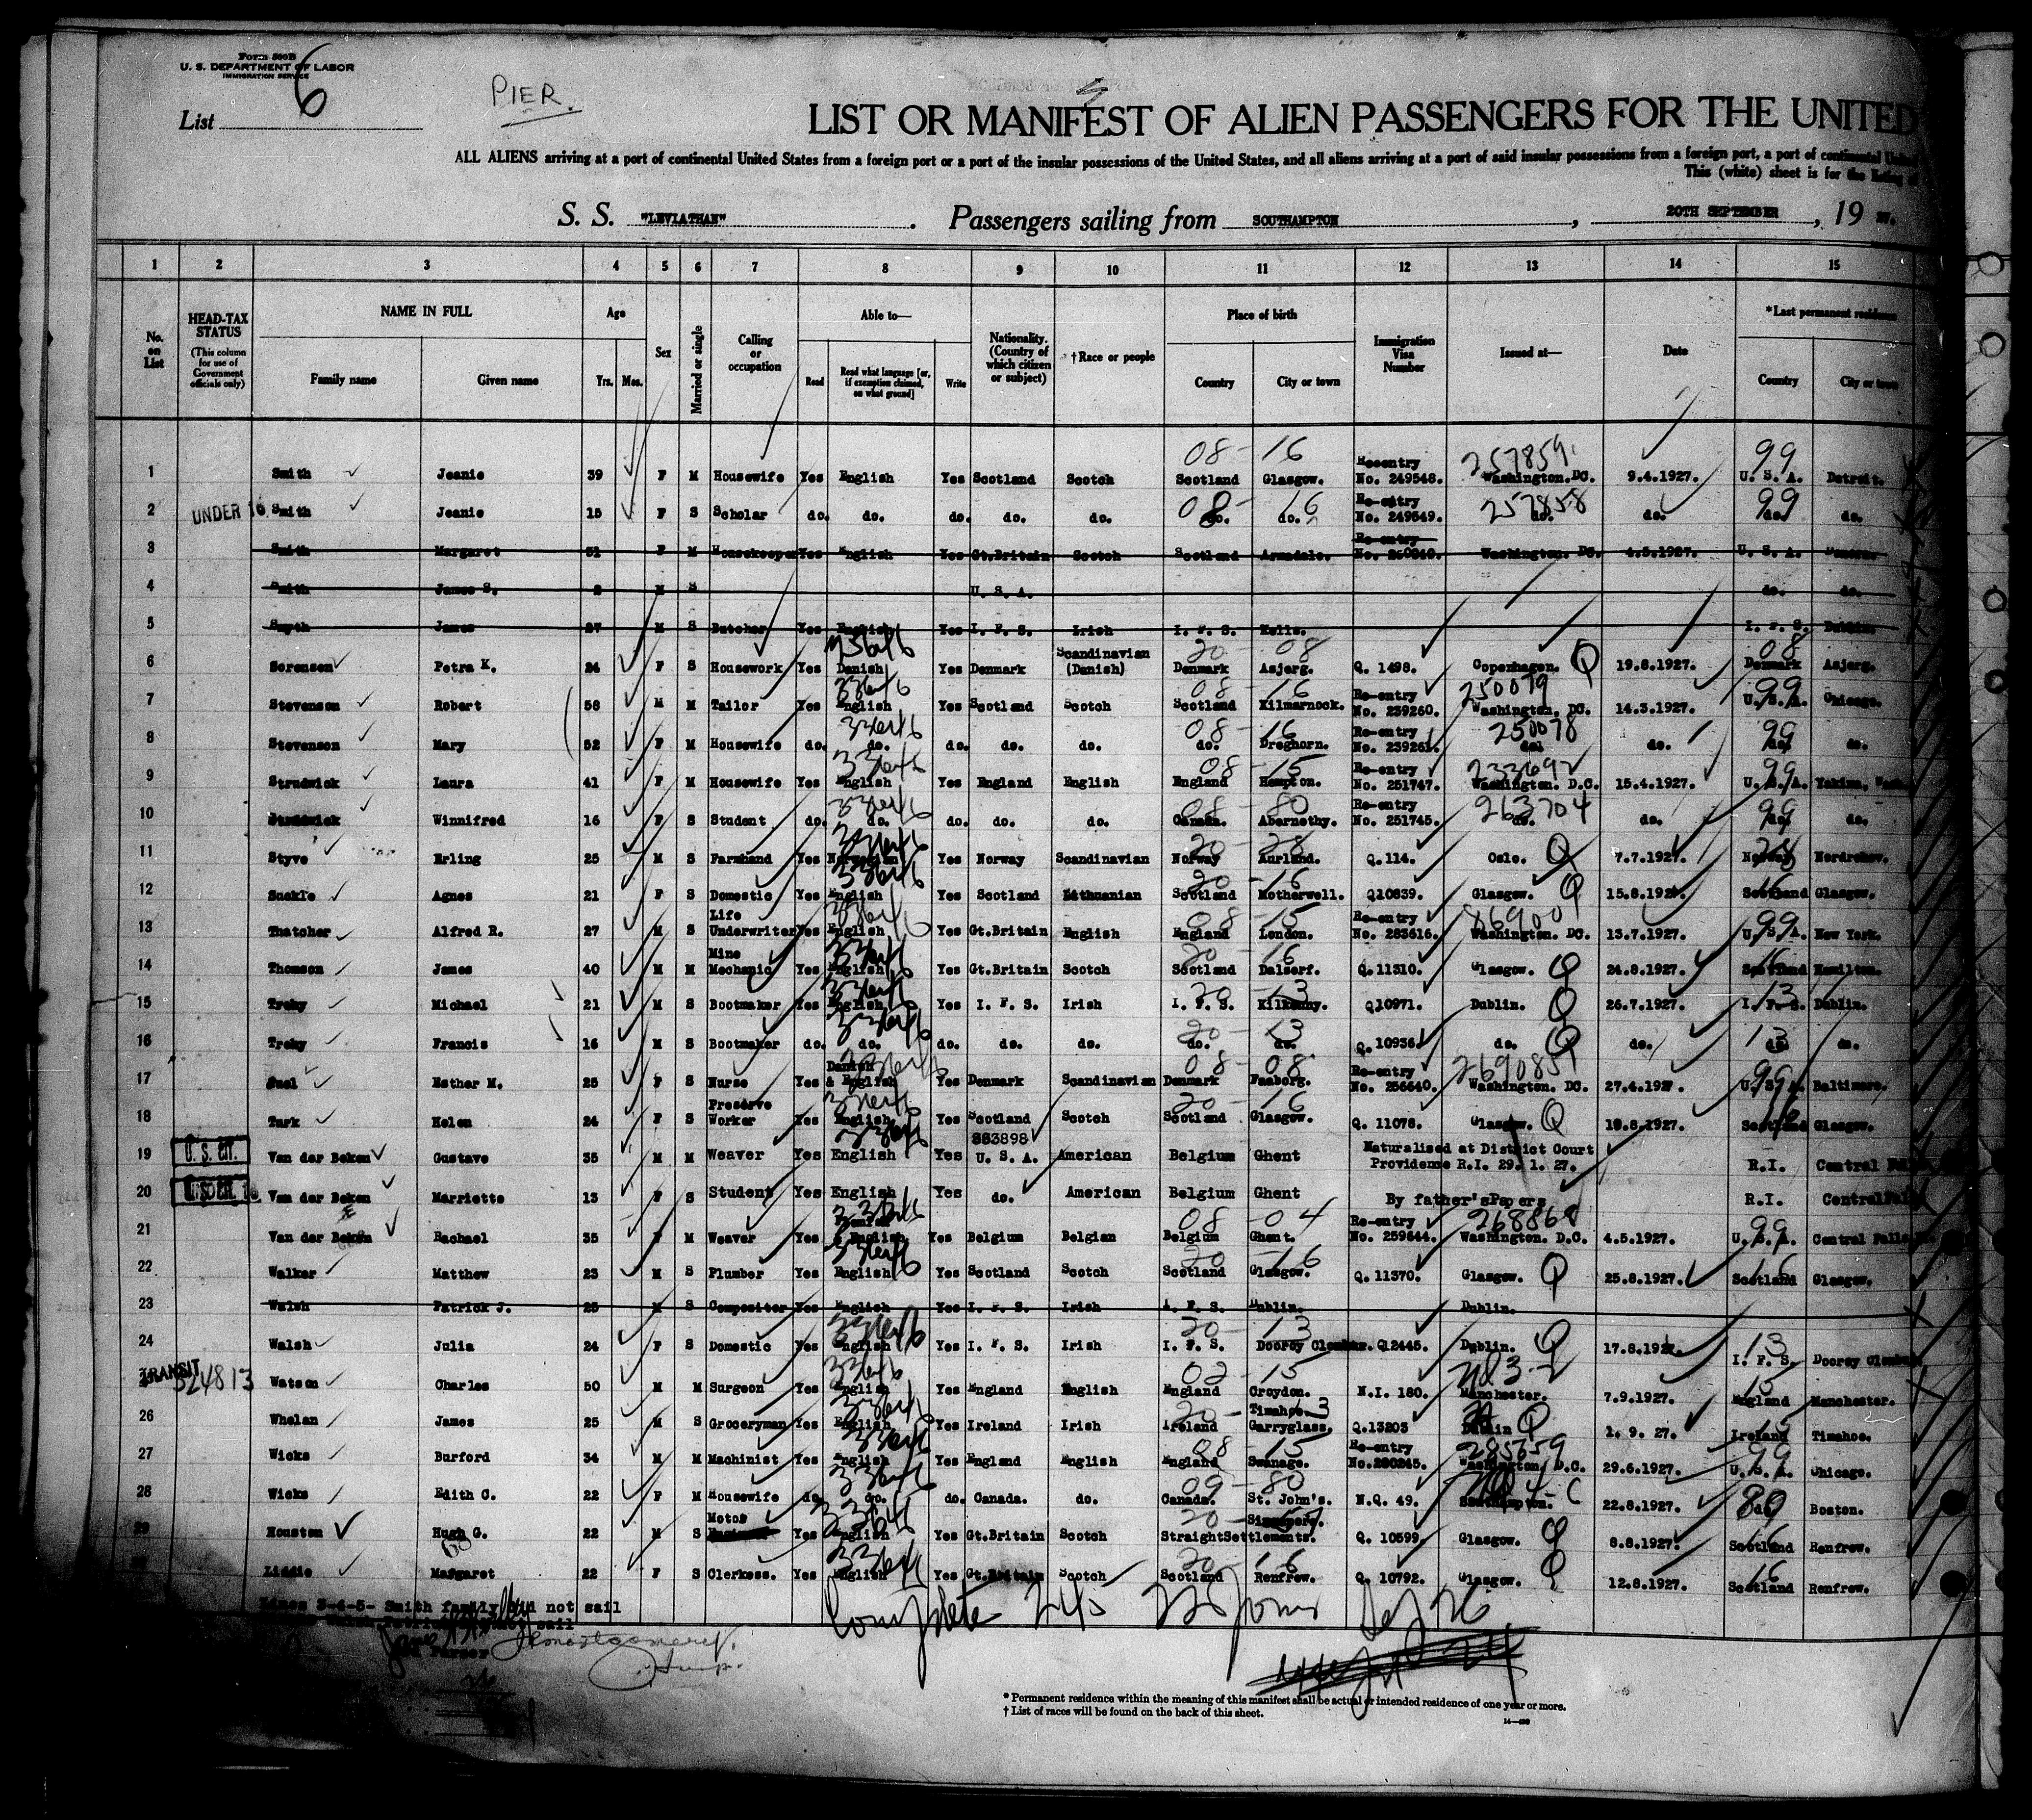 Form 500B
U. S. DEPARTMENT OF LABOR
IMMIGRATION SERVICE
List 6
PIER.
LIST OR MANIFEST OF ALIEN PASSENGERS FOR THE UNITED
ALL ALIENS arriving at a port of continental United States from a foreign port or a port of the insular possessions of the United States, and all aliens arriving at a port of said insular possessions from a foreign port, a port of continental
This (white) sheet is for the listing of
S. S. "LEVIATHAN". Passengers sailing from SOUTHAMPTON, 20TH SEPTEMBER, 19
1 2 3 4 5 6 7 8 9 10 11 12 13 14 15
No. on List
HEAD-TAX STATUS (This column for use of Government officials only)
NAME IN FULL Family name Given name
Age Yrs. Mos.
Sex
Married or single
Calling or occupation
Able to— Read Read what language [or, if exemption claimed, on what ground] Write
Nationality. (Country of which citizen or subject)
†Race or people
Place of birth Country City or town
Immigration Visa Number
Issued at—
Date
*Last permanent residence Country City or town
1 Smith Jeanie 39 F M Housewife Yes English Yes Scotland Scotch Scotland Glasgow. 08-16 Re-entry No. 249548. 257859 Washington. DC. 9.4.1927. 99 U. S. A. Detroit.
2 UNDER 16 Smith Jeanie 15 F S Scholar do. do. do. do. do. do. do. 08-16 Re-entry No. 249549. 257858 do. do. 99 do. do.
3 Smith Margaret 31 F M Housekeeper Yes English Yes Gt.Britain Scotch Scotland Armadale. Re-entry Washington. DC. 4.5.1927. U. S. A.
4 Smith James S. M S U. S. A. do. do.
5 Smyth James 27 M S Butcher Yes English Yes I. F. S. Irish I. F. S. Kells. I. F. S. Dublin.
6 Sorensen Petra K. 24 F S Housework Yes Danish Yes Denmark Scandinavian (Danish) Denmark Asjerg. 20-08 Q. 1498. Copenhagen. Q 19.8.1927. 08 Denmark Asjerg.
7 Stevenson Robert 58 M M Tailor Yes English Yes Scotland Scotch Scotland Kilmarnock. 08-16 Re-entry No. 239260. 250079 Washington, DC. 14.3.1927. 99 U.S.A. Chicago.
8 Stevenson Mary 52 F M Housewife do. do. do. do. do. do. Dreghorn. 08-16 Re-entry No. 239261. 250078 do. do. 99 do. do.
9 Strudwick Laura 41 F M Housewife Yes English Yes England English England Hampton. 08-15 Re-entry No. 251747. 233692 Washington. D.C. 15.4.1927. 99 U.S.A. Yakima,
10 Strudwick Winnifred 16 F S Student do. do. do. do. do. Canada. Abernethy. 08-80 Re-entry No. 251745. 263704 do. do. 99 do. do.
11 Styve Erling 25 M S Farmhand Yes Norwegian Yes Norway Scandinavian Norway Aurland. 20-28 Q.114. Oslo. Q 7.7.1927. 28 Norway Nordrehov.
12 Suckle Agnes 21 F S Domestic Yes English Yes Scotland Lithuanian Scotland Motherwell. 20-16 Q10839. Glasgow. Q 15.8.1927. 16 Scotland Glasgow.
13 Thatcher Alfred R. 27 M S Life Underwriter Yes English Yes Gt.Britain English England London. 08-15 Re-entry No. 283616. Washington. DC. 13.7.1927. 99 U.S.A. New York.
14 Thomson James 40 M M Mine Mechanic Yes English Yes Gt.Britain Scotch Scotland Dalserf. 20-16 Q.11310. Glasgow. Q 24.8.1927. 16 Scotland Hamilton.
15 Trehy Michael 21 M S Bootmaker Yes English Yes I. F. S. Irish I. F. S. Kilkenny. 20-13 Q10971. Dublin. Q 26.7.1927. 13 I. F. S. Dublin.
16 Trehy Francis 16 M S Bootmaker do. do. do. do. do. do. do. 20-13 Q.10936. do. Q do. 13 do. do.
17 Esther M. 25 F S Nurse Yes Danish & English Yes Denmark Scandinavian Denmark Faaborg. 08-08 Re-entry No. 256640. Washington. DC. 27.4.1927. 99 U.S.A. Baltimore.
18 Turk Helen 24 F S Preserve Worker Yes English Yes Scotland Scotch Scotland Glasgow. 20-16 Q. 11078. Glasgow. Q 18.8.1927. 16 Scotland Glasgow.
19 U. S. CIT. Van der Beken Gustave 35 M M Weaver Yes English Yes 883898 U. S. A. American Belgium Ghent Naturalised at District Court Providence R.I. 29. 1. 27. R.I. Central
20 Van der Beken Marriette 13 F S Student Yes English Yes do. American Belgium Ghent By father's Papers R.I. Central
21 Van der Beken Rachael 35 F M Weaver Yes English Yes Belgium Belgian Belgium Ghent. 08-04 Re-entry No. 259644. 268868 Washington. D.C. 4.5.1927. 99 U.S.A. Central Falls
22 Walker Matthew 23 M S Plumber Yes English Yes Scotland Scotch Scotland Glasgow. 20-16 Q. 11370. Glasgow. Q 25.8.1927. 16 Scotland Glasgow.
23 Walsh Patrick J. 25 M S Compositor Yes English Yes I. F. S. Irish I. F. S. Dublin. Dublin.
24 Walsh Julia 24 F S Domestic Yes English Yes I. F. S. Irish I. F. S. Doorey 20-13 Q12445. Dublin. Q 17.8.1927. 13 I. F. S. Doorey
TRANSIT 524813 Watson Charles 50 M M Surgeon Yes English Yes England English England Croydon. 02-15 N.I. 180. Manchester. 7.9.1927. 15 England Manchester.
26 Whelan James 25 M S Groceryman Yes English Yes Ireland Irish Ireland Timahoe Garryglass. Q.13203 Dublin Q 1. 9. 27. Ireland Timahoe.
27 Wicks Burford 34 M M Machinist Yes English Yes England English England Swanage. 08-15 Re-entry No.280245. 285359 Washington, D.C. 29.6.1927. 99 U.S.A. Chicago.
28 Wicks Edith C. 22 F M Housewife do. do. do. Canada. do. Canada. St. John's. 09-80 N.Q. 49. Southampton. 22.8.1927. do. Boston.
29 Houston Hugh G. 22 M S Motor Yes English Yes Gt.Britain Scotch Straight Settlements. Singapore. Q. 10599. Glasgow. Q 8.8.1927. 16 Scotland Renfrew.
Liddie Margaret 22 F S Clerkess. Yes English Yes Gt.Britain Scotch Scotland Renfrew. 20-16 Q 10792. Glasgow. Q 12.8.1927. 16 Scotland Renfrew.
Lines 3-4-5- Smith family did not sail
Complete 245
Purser
* Permanent residence within the meaning of this manifest shall be actual or intended residence of one year or more.
† List of races will be found on the back of this sheet.